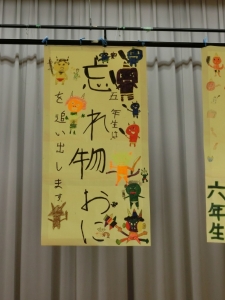 五年生は
忘れ物おに
を追い出します
六年生